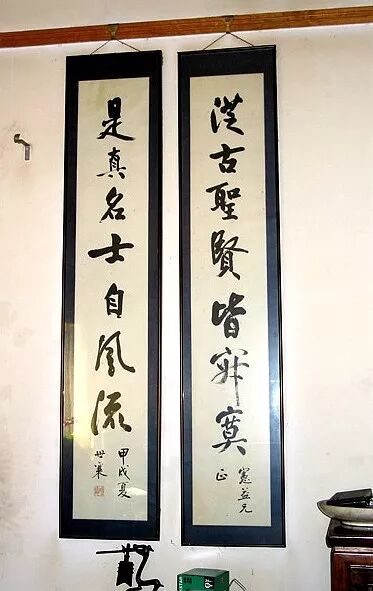 從古聖賢皆寂寞
憲益兄
正
是真名士自風流
甲戌夏
世襄